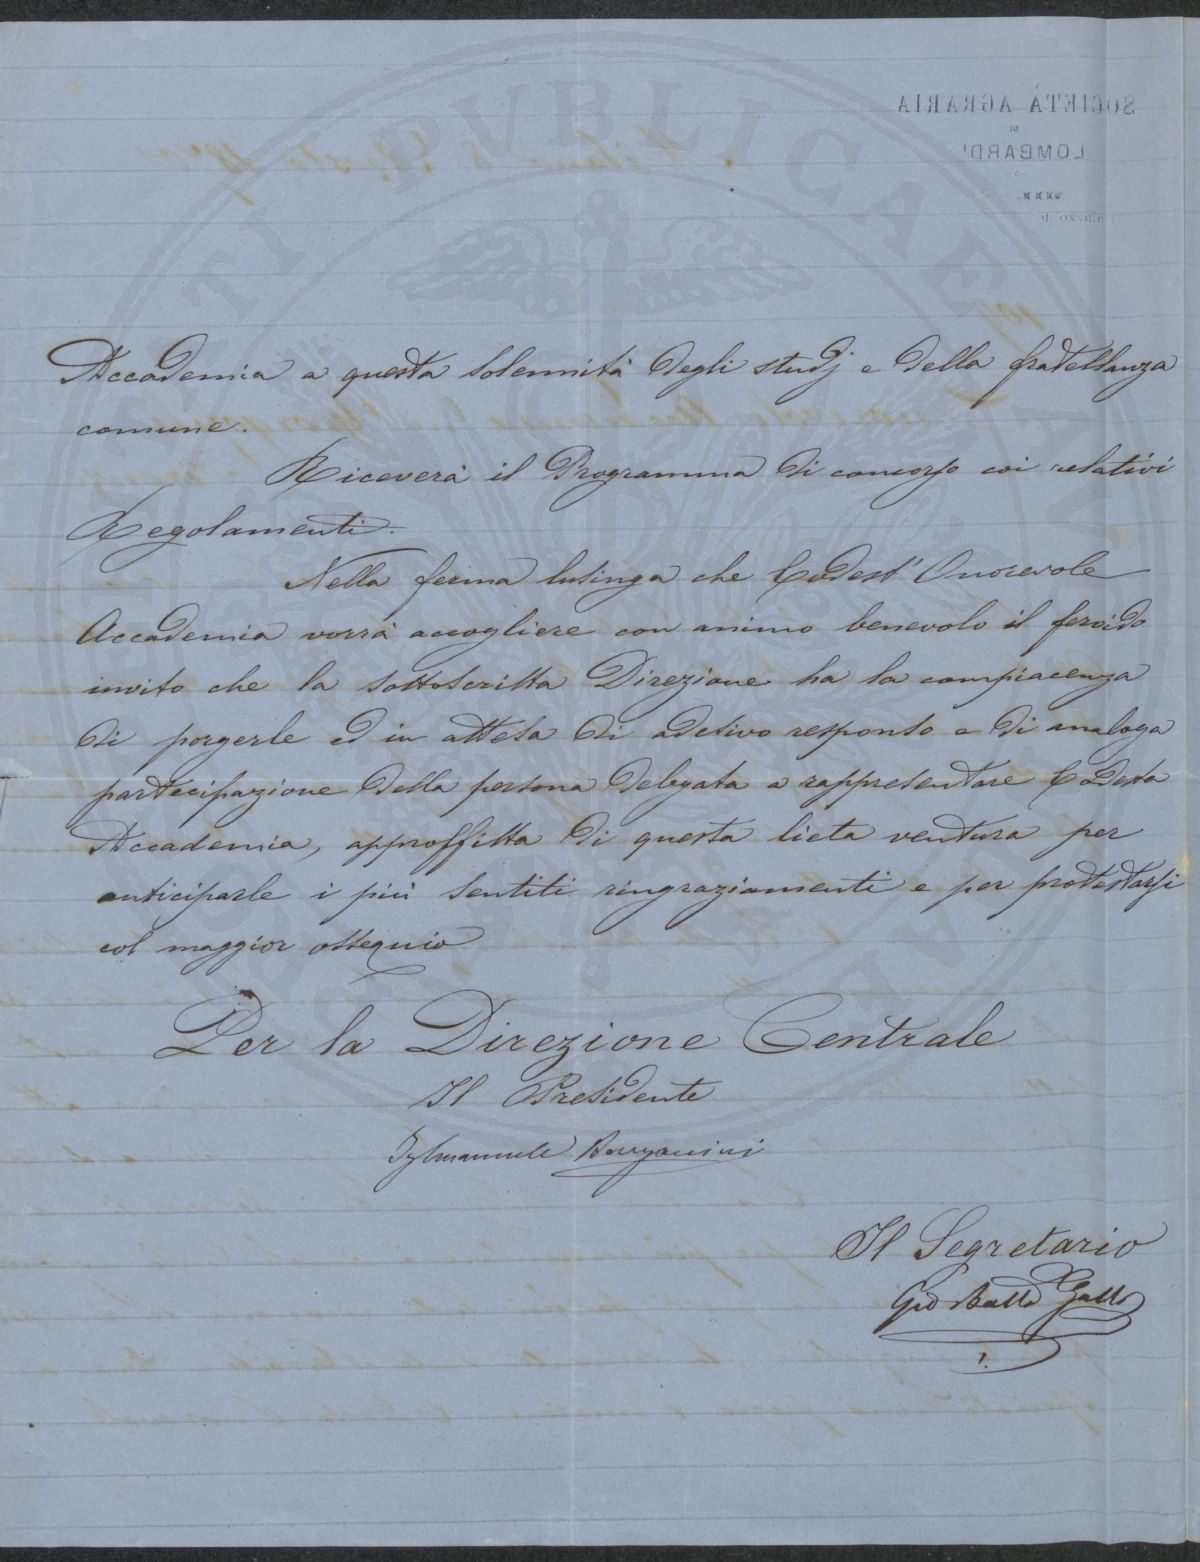 Accademia a questa solennità degli studj e della fratellanza
comune.
Riceverà il Programma di concorso coi relativi
Regolamenti.
Nella ferma lusinga che Codest' Onorevole
Accademia vorrà accogliere con animo benevolo il fervido
invito che la sottoscritta Direzione ha la compiacenza
di porgerle ed in attesa di adesivo responso e di analoga
partecipazione della persona delegata a rappresentare Codesta
Accademia, approffitta di questa lieta ventura per
anticiparle i più sentiti ringraziamenti e per protestarsi
col maggior ossequio
Per la Direzione Centrale
Il Presidente
Il Segretario
Gio Batta Gallo